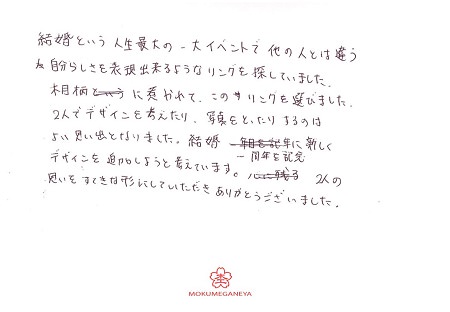 結婚という人生最大の一大イベントで他の人とは違う
自分らしさを表現出来るようなリングを探していました。
木目柄に惹かれて、このリングを選びました。
2人でデザインを考えたり、写真をとったりするのは
よい思い出となりました。結婚一周年を記念に新しく
デザインを追加しようと考えています。2人の
思いをすてきな形にしていただきありがとうございました。
MOKUMEGANEYA